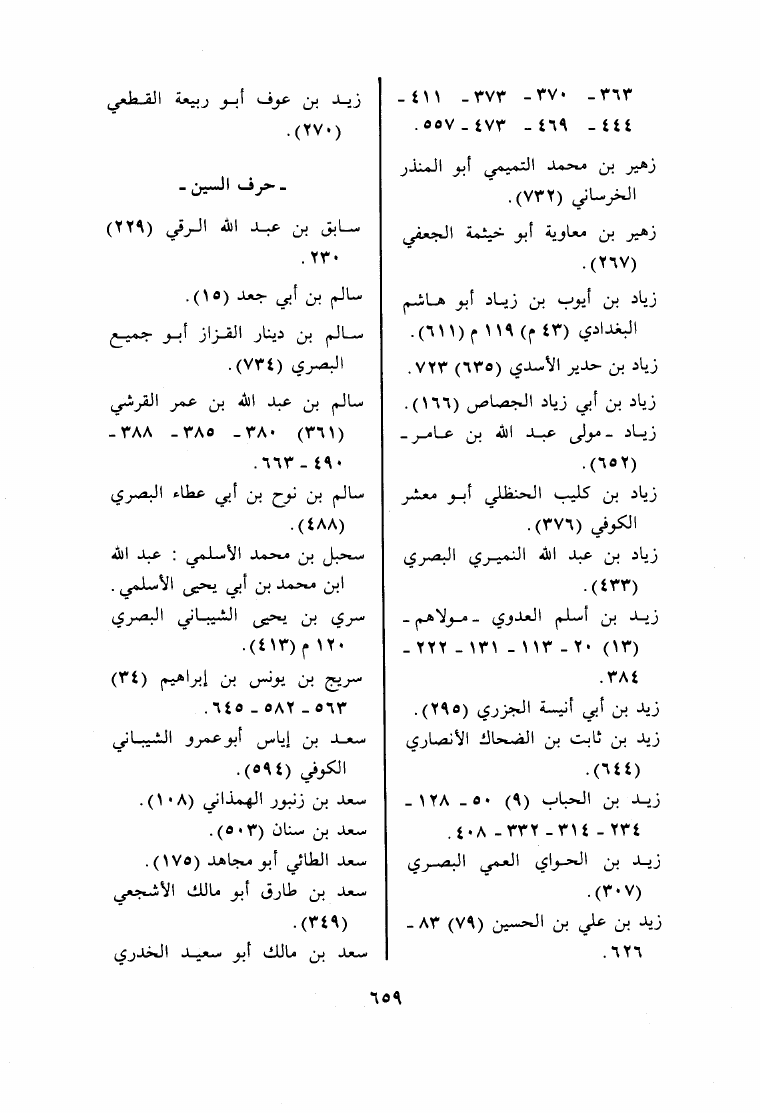 ٣٦٣ - ٣٧٠ - ٣٧٣ - ٤١١ -
٤٤٤ - ٤٦٩ - ٤٧٣ - ٥٥٧ .
زهير بن محمد التميمي أبو المنذر
الخرساني (٧٣٢).
زهير بن معاوية أبو خيثمة الجعفي
(٢٦٧).
زياد بن أيوب بن زياد أبو هاشم
البغدادي (٤٣ م) ١١٩ م (٦١١).
زياد بن حدير الأسدي (٦٣٥) ٧٢٣.
زياد بن أبي زياد الجصاص (١٦٦).
زياد - مولى عبد الله بن عامر -
(٦٥٢).
زياد بن كليب الحنظلي أبو معشر
الكوفي (٣٧٦).
زياد بن عبد الله النميري البصري
(٤٣٣).
زيد بن أسلم العدوي - مولاهم -
(١٣) ٢٠ - ١١٣ - ١٣١ - ٢٢٢ -
٣٨٤.
زيد بن أبي أنيسة الجزري (٢٩٥).
زيد بن ثابت بن الضحاك الأنصاري
(٦٤٤).
زيد بن الحباب (٩) ٥٠ - ١٢٨ -
٢٣٤ - ٣١٤ - ٣٣٢ - ٤٠٨ .
زيد بن الحواي العمي البصري
(٣٠٧).
زيد بن علي بن الحسين (٧٩) ٨٣ -
٦٢٦ .
زيد بن عوف أبو ربيعة القطعي
(٢٧٠).
- حرف السين -
سابق بن عبد الله الرقي (٢٢٩)
٢٣٠ .
سالم بن أبي جعد (١٥).
سالم بن دينار القزاز أبو جميع
البصري (٧٣٤).
سالم بن عبد الله بن عمر القرشي
(٣٦١) ٣٨٠ - ٣٨٥ - ٣٨٨ -
٤٩٠ - ٦٦٣ .
سالم بن نوح بن أبي عطاء البصري
(٤٨٨).
سحبل بن محمد الأسلمي : عبد الله
ابن محمد بن أبي يحيى الأسلمي .
سري بن يحيى الشيباني البصري
١٢٠ م (٤١٣).
سريج بن يونس بن إبراهيم (٣٤)
٥٦٣ - ٥٨٢ - ٦٤٥ .
سعد بن إياس أبو عمرو الشيباني
الكوفي (٥٩٤).
سعد بن زنبور الهمذاني (١٠٨).
سعد بن سنان (٥٠٣).
سعد الطائي أبو مجاهد (١٧٥).
سعد بن طارق أبو مالك الأشجعي
(٣٤٩).
سعد بن مالك أبو سعيد الخدري
٦٥٩